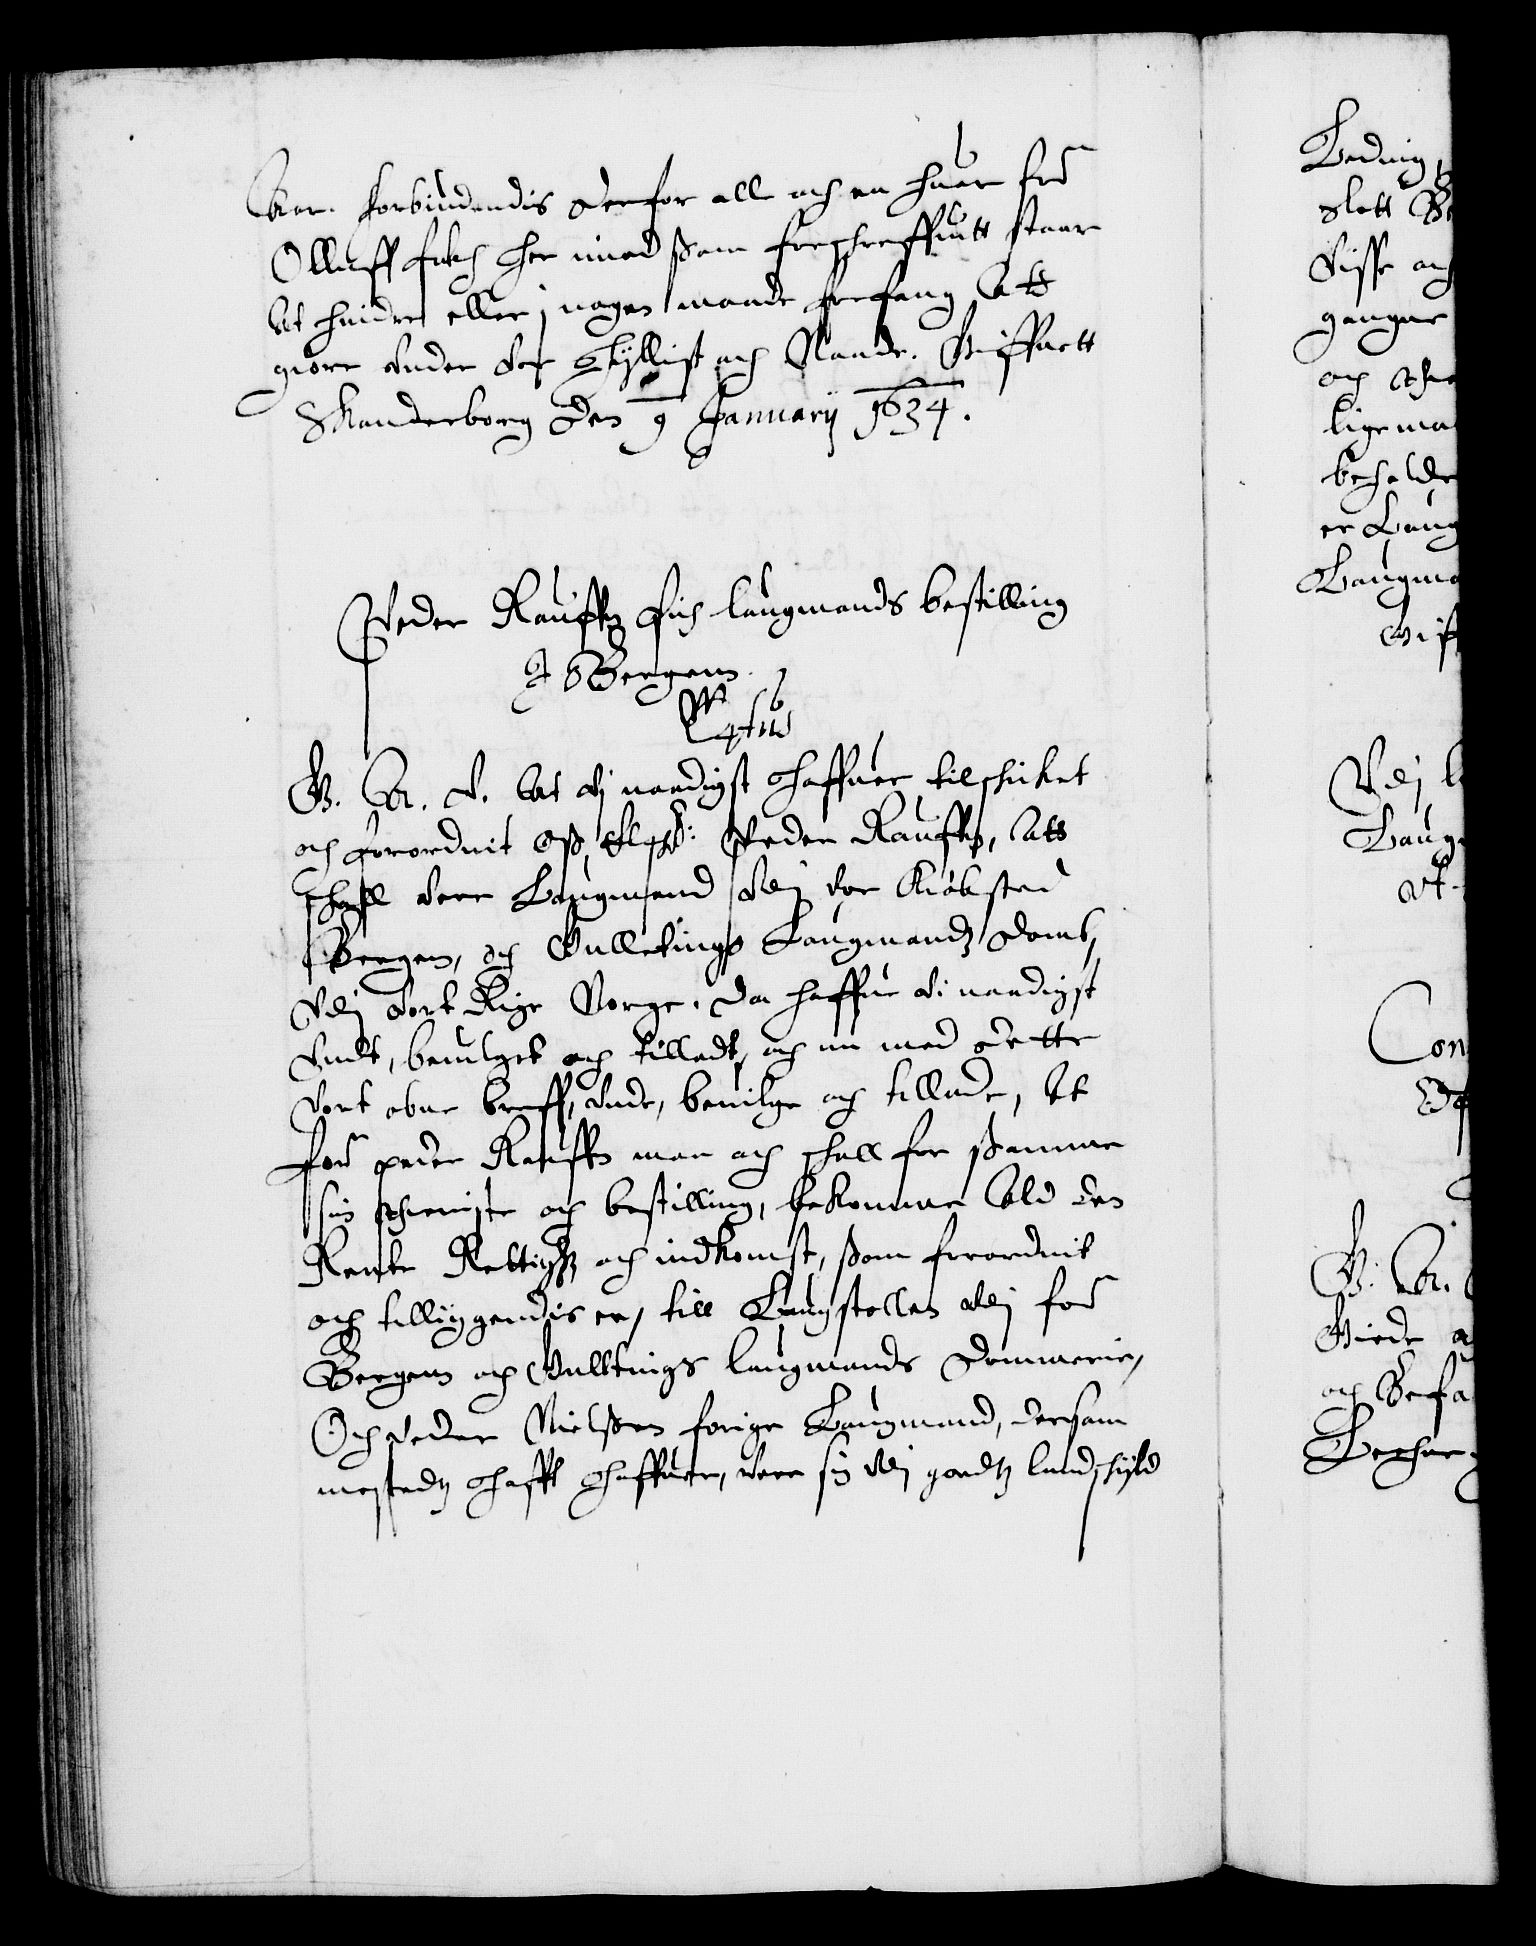 Kor. Forbiudendis derfor alle och en huer for:
Olluff her imod ßom foreschreffuitt staar
At hindre eller j nogen maade forfang Att
giore Under vor hyllist och Naade. Giffuett
Skanderborg den 9 Januarij 1634.
Peder Rauffs fich laugmands bestilling
J Bergenn.
G. A. V. At vj naadigst haffuer tilschicket
och forordnit Peder Rauffs, Att
schall vere Laugmand udj vor Kiøbsted
Bergen, och Gulletings Laugmandz Domb,
Udj vort Rige Norge. Da haffue vi naadigst
Undt, beuilget och tilladt, och nu med dette
vort obne breff, unde, beuilge och tillade, At
for: peder Rauffs maa och schall for ßamme
sin thieniste och bestilling, bekomme Ald den
Rente Rettighed och indkomst, ßom forordnit
och tilliggendis er, till Laugstollen udj for:
Bergenn och Gulltings laugmands Dommerie,
Och Peder Nielßen forige Laugmand, dersam
mestedz hafft haffuer, vere sig udj goedtz landschyld
Ledning,
slott
Visse och
gangne
och
ligema
beholde
er Laug
Laugma
Giff
Udj
Laug
Con
G. A.
Giede
och Befa